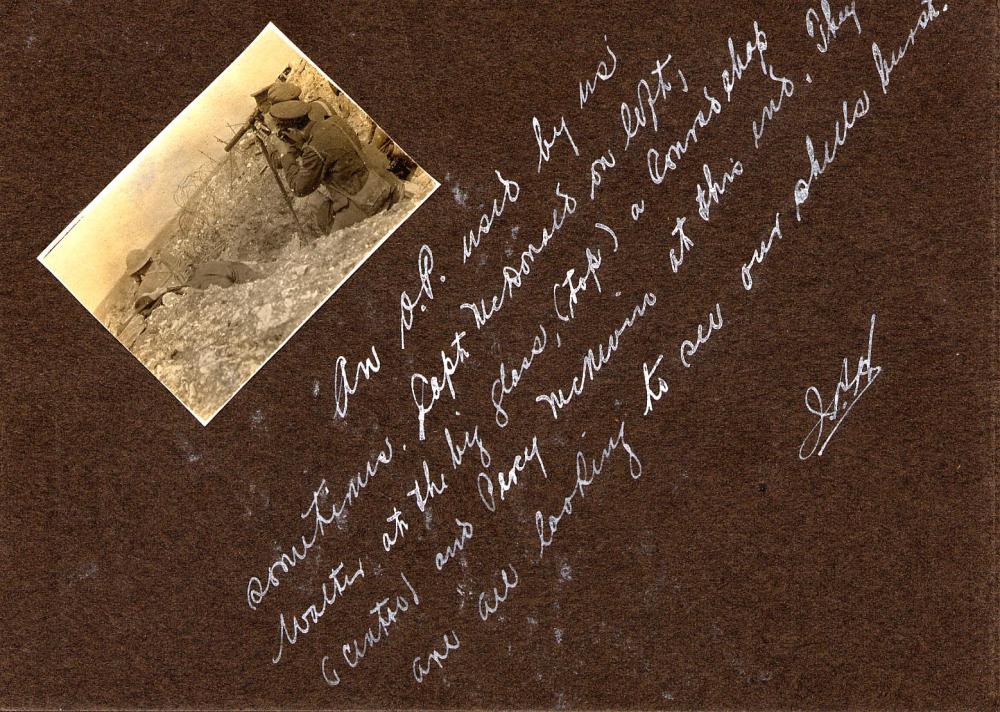 An O.P. used by us
sometimes. Capt McDonald on left,
Walter at the big glass, (top) a Conrad chap
(centre) and Percy at this end. They
are all looking to see our shells burst.